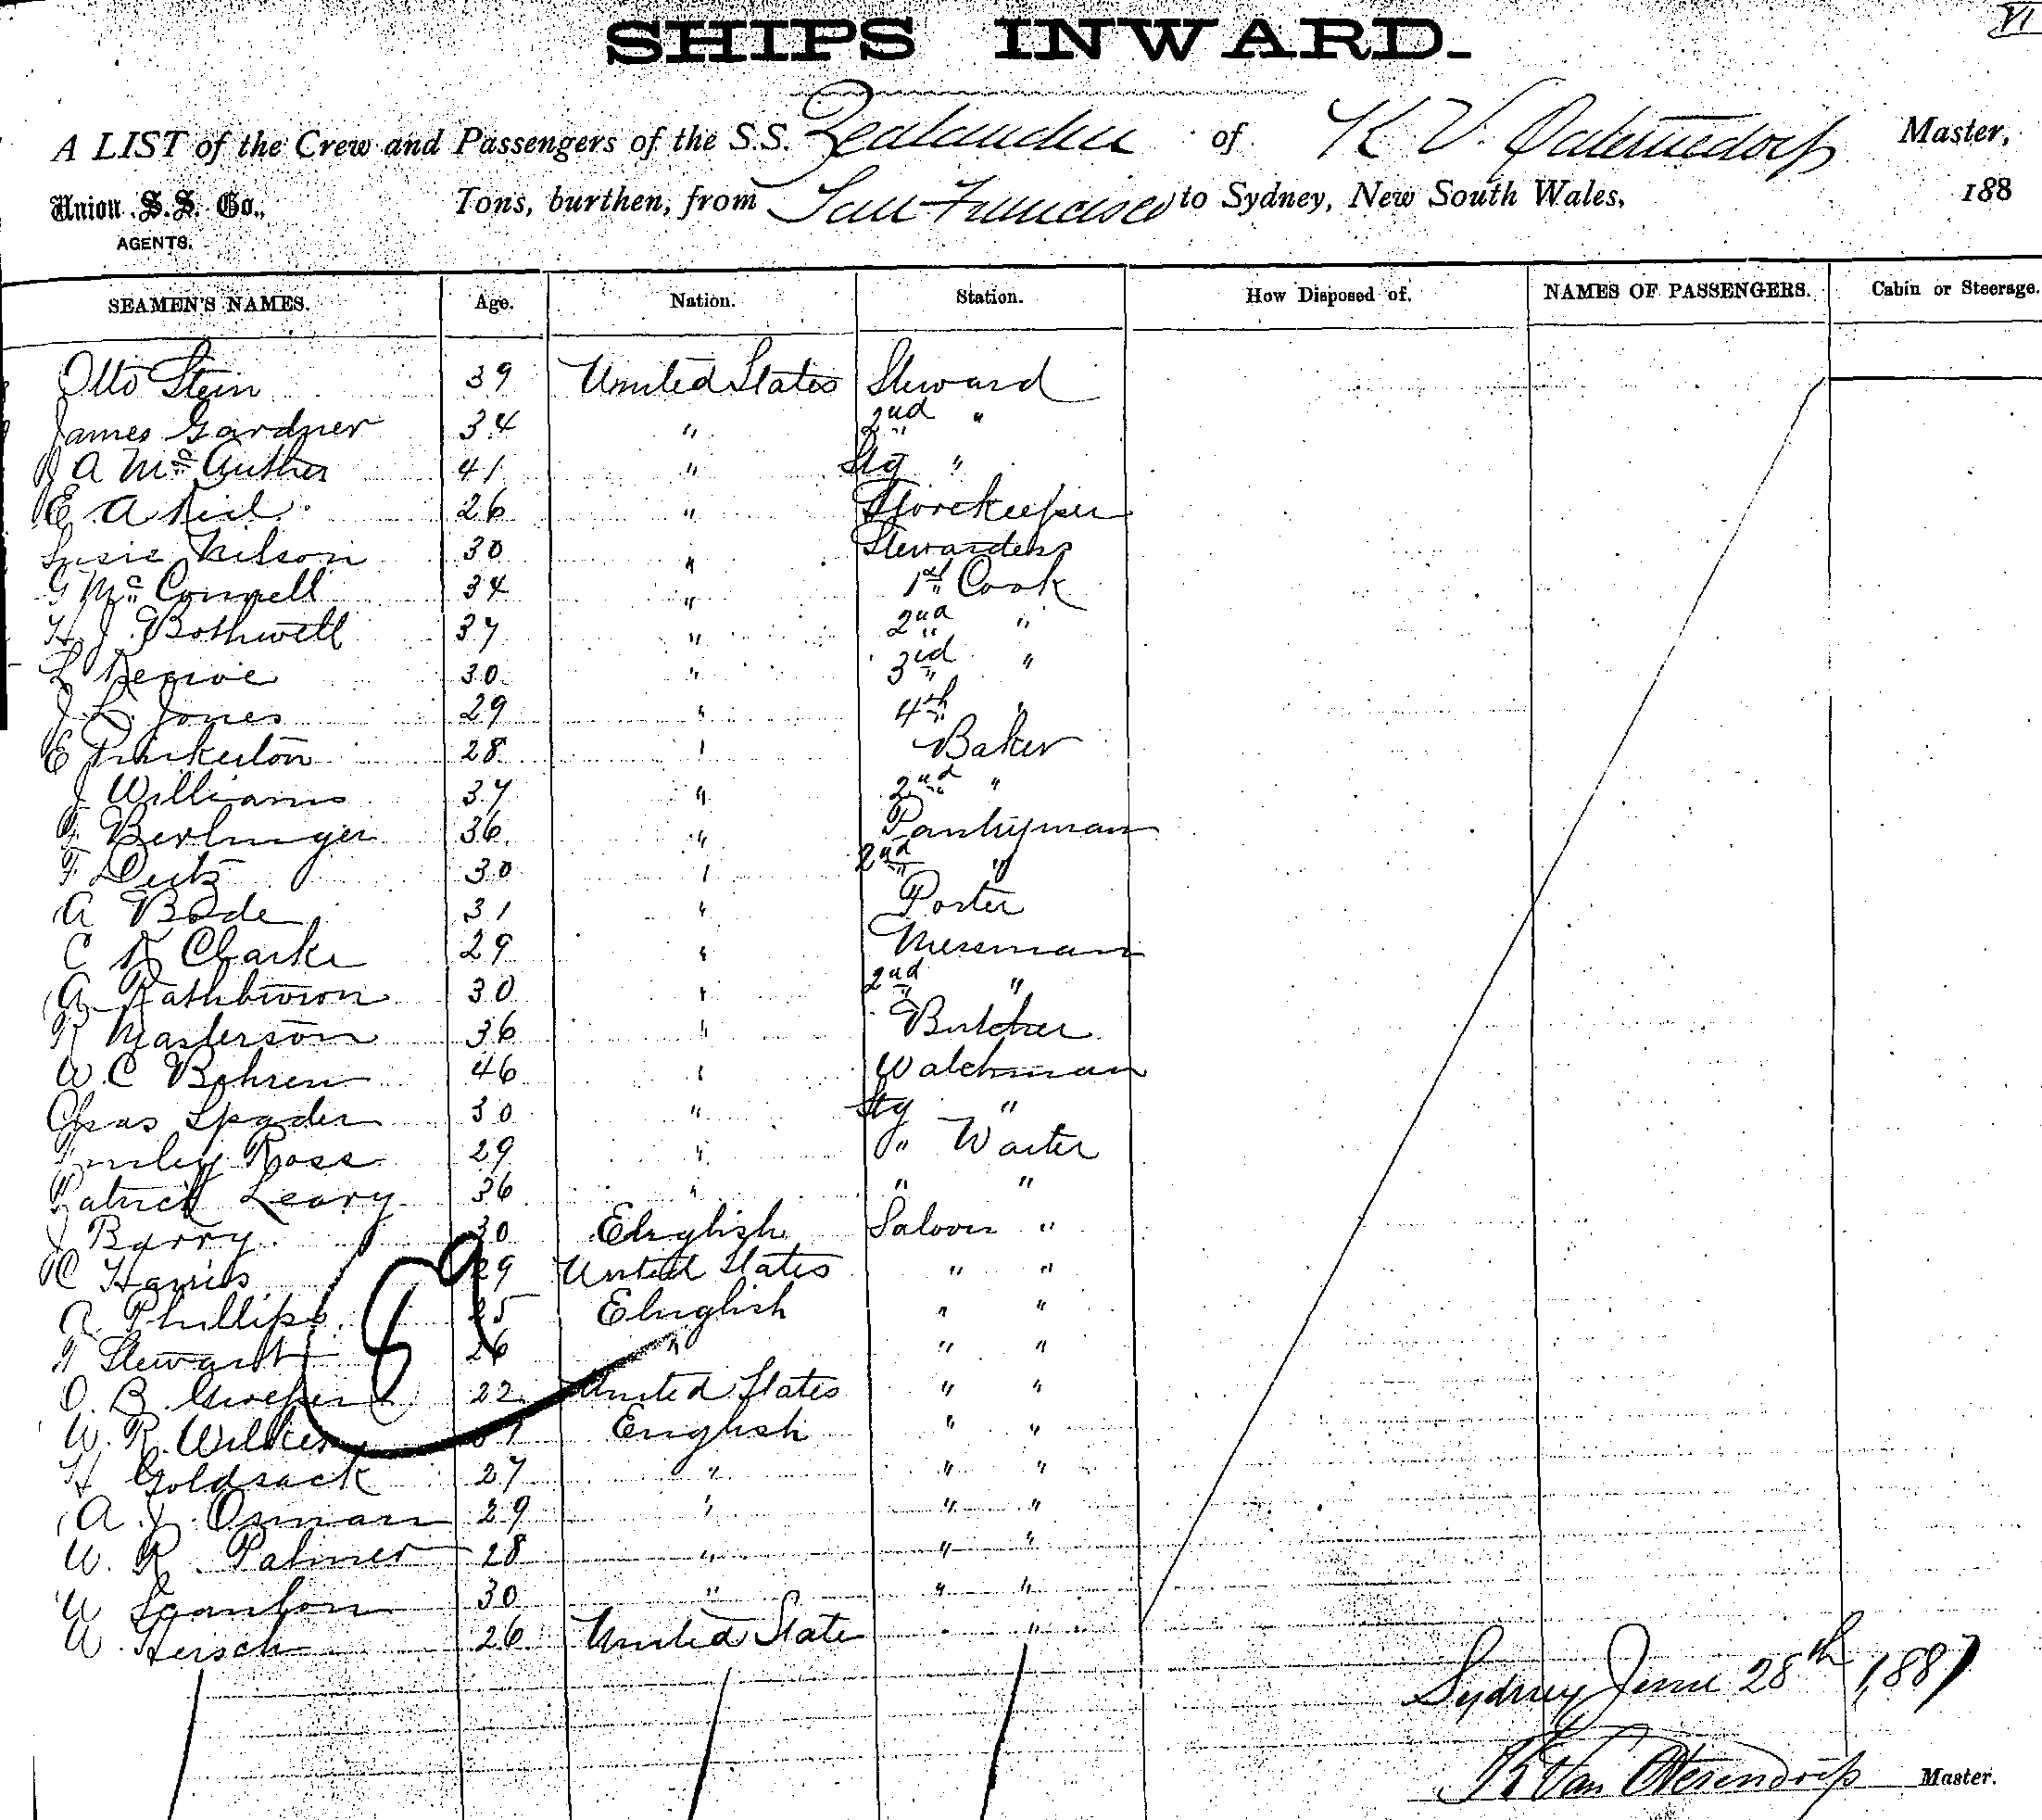 VI
SHIPS INWARD.
A LIST of the Crew and Passengers of the S.S. Zealandia of K V. Master,
Union S.S. Co., Tons, burthen, from San Francisco to Sydney, New South Wales, 188
AGENTS.
SEAMEN'S NAMES. Age. Nation. Station. How Disposed of. NAMES OF PASSENGERS. Cabin or Steerage.
Otto Stein 39 United States Steward
James Gardner 34 " 2nd "
A Mc Arthur 41 " Stg "
E A Reid 26 " Storekeeper
Susie Nilson 30 " Stewardess
G Mc Connell 34 " 1st Cook
H J Bothwell 37 " 2nd "
L 30 " 3rd "
J. L. Jones 29 " 4th "
E Pinkerton 28 " Baker
J Williams 37 " 2nd "
F Berlinger 36 " Pantryman
F Deitz 30 " 2nd "
A Bode 31 " Porter
C Clarke 29 " Messman
A 30 " 2nd "
R Masterson 36 " Butcher
W. C Behren 46 " Watchman
Chas Spader 30 " Stg "
Ross 29 " " Waiter
Patrick Leary 36 " " "
J Barry 30 English Saloon "
Harris 29 United States " "
A. Phillips 25 English " "
T Stewart 26 " " "
O. B. 22 United States " "
W. R. English " "
H Goldsack 27 " " "
A. J. Osman 29 " " "
W. R. Palmer 28 " " "
W Scanlon 30 " " "
W. Hersch 26 United State " "
89
Sydney June 28th 1887
Van Master.